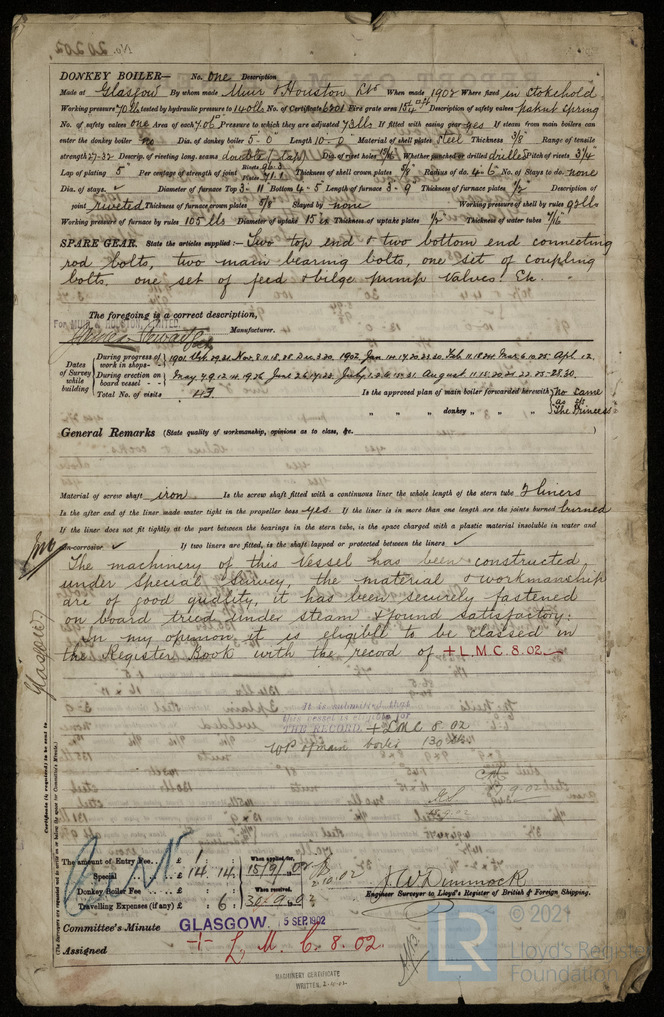 No. 20202
DONKEY BOILER— No. One Description
Made at Glasgow By whom made Muir & Houston Ltd When made 1902 Where fixed in stokehold
Working pressure 70 lb tested by hydraulic pressure to 140 lbs No. of Certificate 6201 Fire grate area Description of safety valves patent spring
No. of safety valves one Area of each 7.06 Pressure to which they are adjusted 73 lbs If fitted with easing gear yes If steam from main boilers can
enter the donkey boiler no Dia. of donkey boiler 5-0 Length 10-0 Material of shell plates steel Thickness 3/8" Range of tensile
strength 27-32 Descrip. of riveting long. seams double (lap) Dia. of rivet holes Whether punched or drilled drilled Pitch of rivets 3/4
Lap of plating 5" Per centage of strength of joint Rivets Plates 71.1 Thickness of shell crown plates Radius of do. 4-6 No. of Stays to do. none
Dia. of stays. ✓ Diameter of furnace Top 3-11 Bottom 4-5 Length of furnace 3-9 Thickness of furnace plates 1/2" Description of
joint riveted Thickness of furnace crown plates 5/8 Stayed by none Working pressure of shell by rules 92 lbs
Working pressure of furnace by rules 105 lbs Diameter of uptake 15 in Thickness of uptake plates 1/2" Thickness of water tubes 7/16"
SPARE GEAR. State the articles supplied:— Two top end & two bottom end connecting
rod bolts, two main bearing bolts, one set of coupling
bolts, one set of feed & bilge pump valves. Etc.
The foregoing is a correct description,
For MUIR & HOUSTON, LIMITED.
Manufacturer.
Dates of Survey while building
During progress of work in shops - - 1901 Sep. 29.31 Nov. 8.11.18.28 Dec. 3.20 1902 Jan 14.17.20.23.30 Feb 11.18.24 Mar 6.10.25 Apl 12
During erection on board vessel - - May 7.9.12.14.19.26 June 26 July August 11.18.20.21.22.25-28.30
Total No. of visits 47 Is the approved plan of main boiler forwarded herewith No same
" " " donkey " " " as S/S The Princess
General Remarks (State quality of workmanship, opinions as to class, &c.)
Material of screw shaft iron Is the screw shaft fitted with a continuous liner the whole length of the stern tube 2 liners
Is the after end of the liner made water tight in the propeller boss yes If the liner is in more than one length are the joints burned burned
If the liner does not fit tightly at the part between the bearings in the stern tube, is the space charged with a plastic material insoluble in water and
non-corrosive ✓ If two liners are fitted, is the shaft lapped or protected between the liners ✓
The machinery of this Vessel has been constructed
under special survey, the material & workmanship
are of good quality, it has been securely fastened
on board tried under steam & found satisfactory:
In my opinion it is eligible to be classed in
the Register Book with the record of + L.M.C. 8. 02.
Glasgow
Certificate (if required) to be sent to
It is submitted that
this vessel is eligible for
THE RECORD. + LMC 8.02
WP of main boiler 130 lbs
The amount of Entry Fee.. £ 1 : :
Special £ 14 : 14 :
Donkey Boiler Fee £ : :
Travelling Expenses (if any) £ : 6 :
When applied for, 15/9/02
When received, 30.9.02
2.10.02
J. W. Dimmock
Engineer Surveyor to Lloyd's Register of British & Foreign Shipping.
Committee's Minute GLASGOW. 15 SEP. 1902
Assigned + L. M. C. 8. 02.
MACHINERY CERTIFICATE
WRITTEN.
LR
© 2021
Lloyd's Register
Foundation